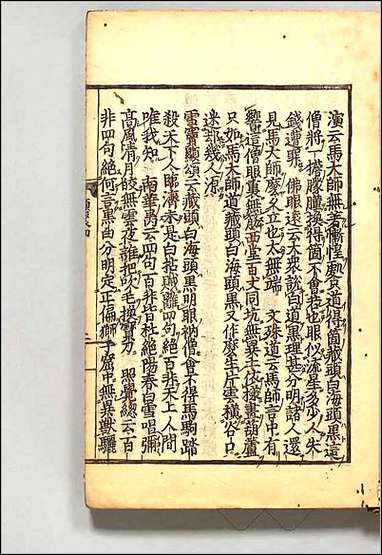 演云馬大師無著慚惶處只道得箇藏頭白海頭黑這
僧將一擔朦朧換得箇不會若也眼似流星多少人失
錢遭罪 佛眼遠云大衆說白道黑理甚分明諸人還
見馬大師麼久立也太無端 文殊道云馬師言中有
響這僧眼裏無筋西堂百丈同坑無異土依樣畫葫蘆
只如馬大師道藏頭白海頭黑又作麼生片雲橫谷口
迷却幾人源
雪竇顯頌云藏頭白海頭黑明眼衲僧會不得馬駒踏
殺天下人臨濟未是白拈賊離四句絕百非天上人間
唯我知 南華昺云四句百非皆杜絕陽春白雪唱彌
高風清月皎無雲夜誰把吹毛換寶刀 照覺總云百
非四句絕何言黑白分明定正偏獅子窟中無異獸驪